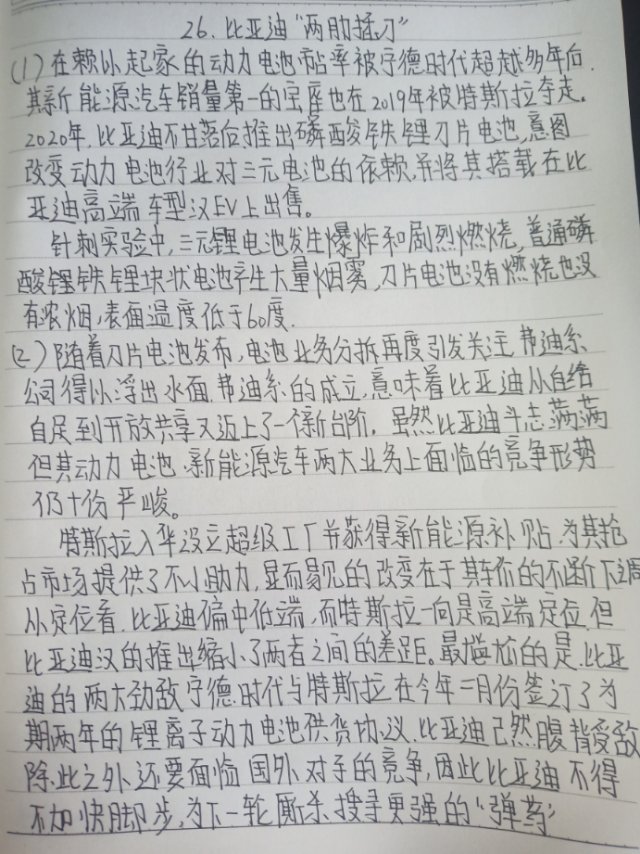 26. 比亚迪“两肋插刀”
(1) 在赖以起家的动力电池市占率被宁德时代超越多年后.
其新能源汽车销量第一的宝座也在2019年被特斯拉夺走。
2020年,比亚迪不甘落后推出磷酸铁锂刀片电池,意图
改变动力电池行业对三元电池的依赖,并将其搭载在比
亚迪高端车型汉EV上出售。
针刺实验中,三元锂电池发生爆炸和剧烈燃烧,普通磷
酸锂铁锂块状电池产生大量烟雾,刀片电池没有燃烧也没
有浓烟,表面温度低于60度.
(2) 随着刀片电池发布,电池业务分拆再度引发关注.弗迪系
公司得以浮出水面.弗迪系的成立,意味着比亚迪从自给
自足到开放共享又迈上了一个新台阶。虽然比亚迪斗志满满
但其动力电池.新能源汽车两大业务上面临的竞争形势
仍十份严峻。
特斯拉入华设立超级工厂并获得新能源补贴.为其抢
占市场提供了不小助力,显而易见的改变在于其车价的不断下调
从定位看.比亚迪偏中低端,而特斯拉一向是高端定位.但
比亚迪汉的推出缩小了两者之间的差距。最尴尬的是.比亚
迪的两大劲敌宁德时代与特斯拉在今年二月份签订了为
期两年的锂离子动力电池供货协议.比亚迪已然腹背受敌
除此之外还要面临国外对手的竞争,因此比亚迪不得
不加快脚步,为下一轮厮杀搜寻更强的“弹药”